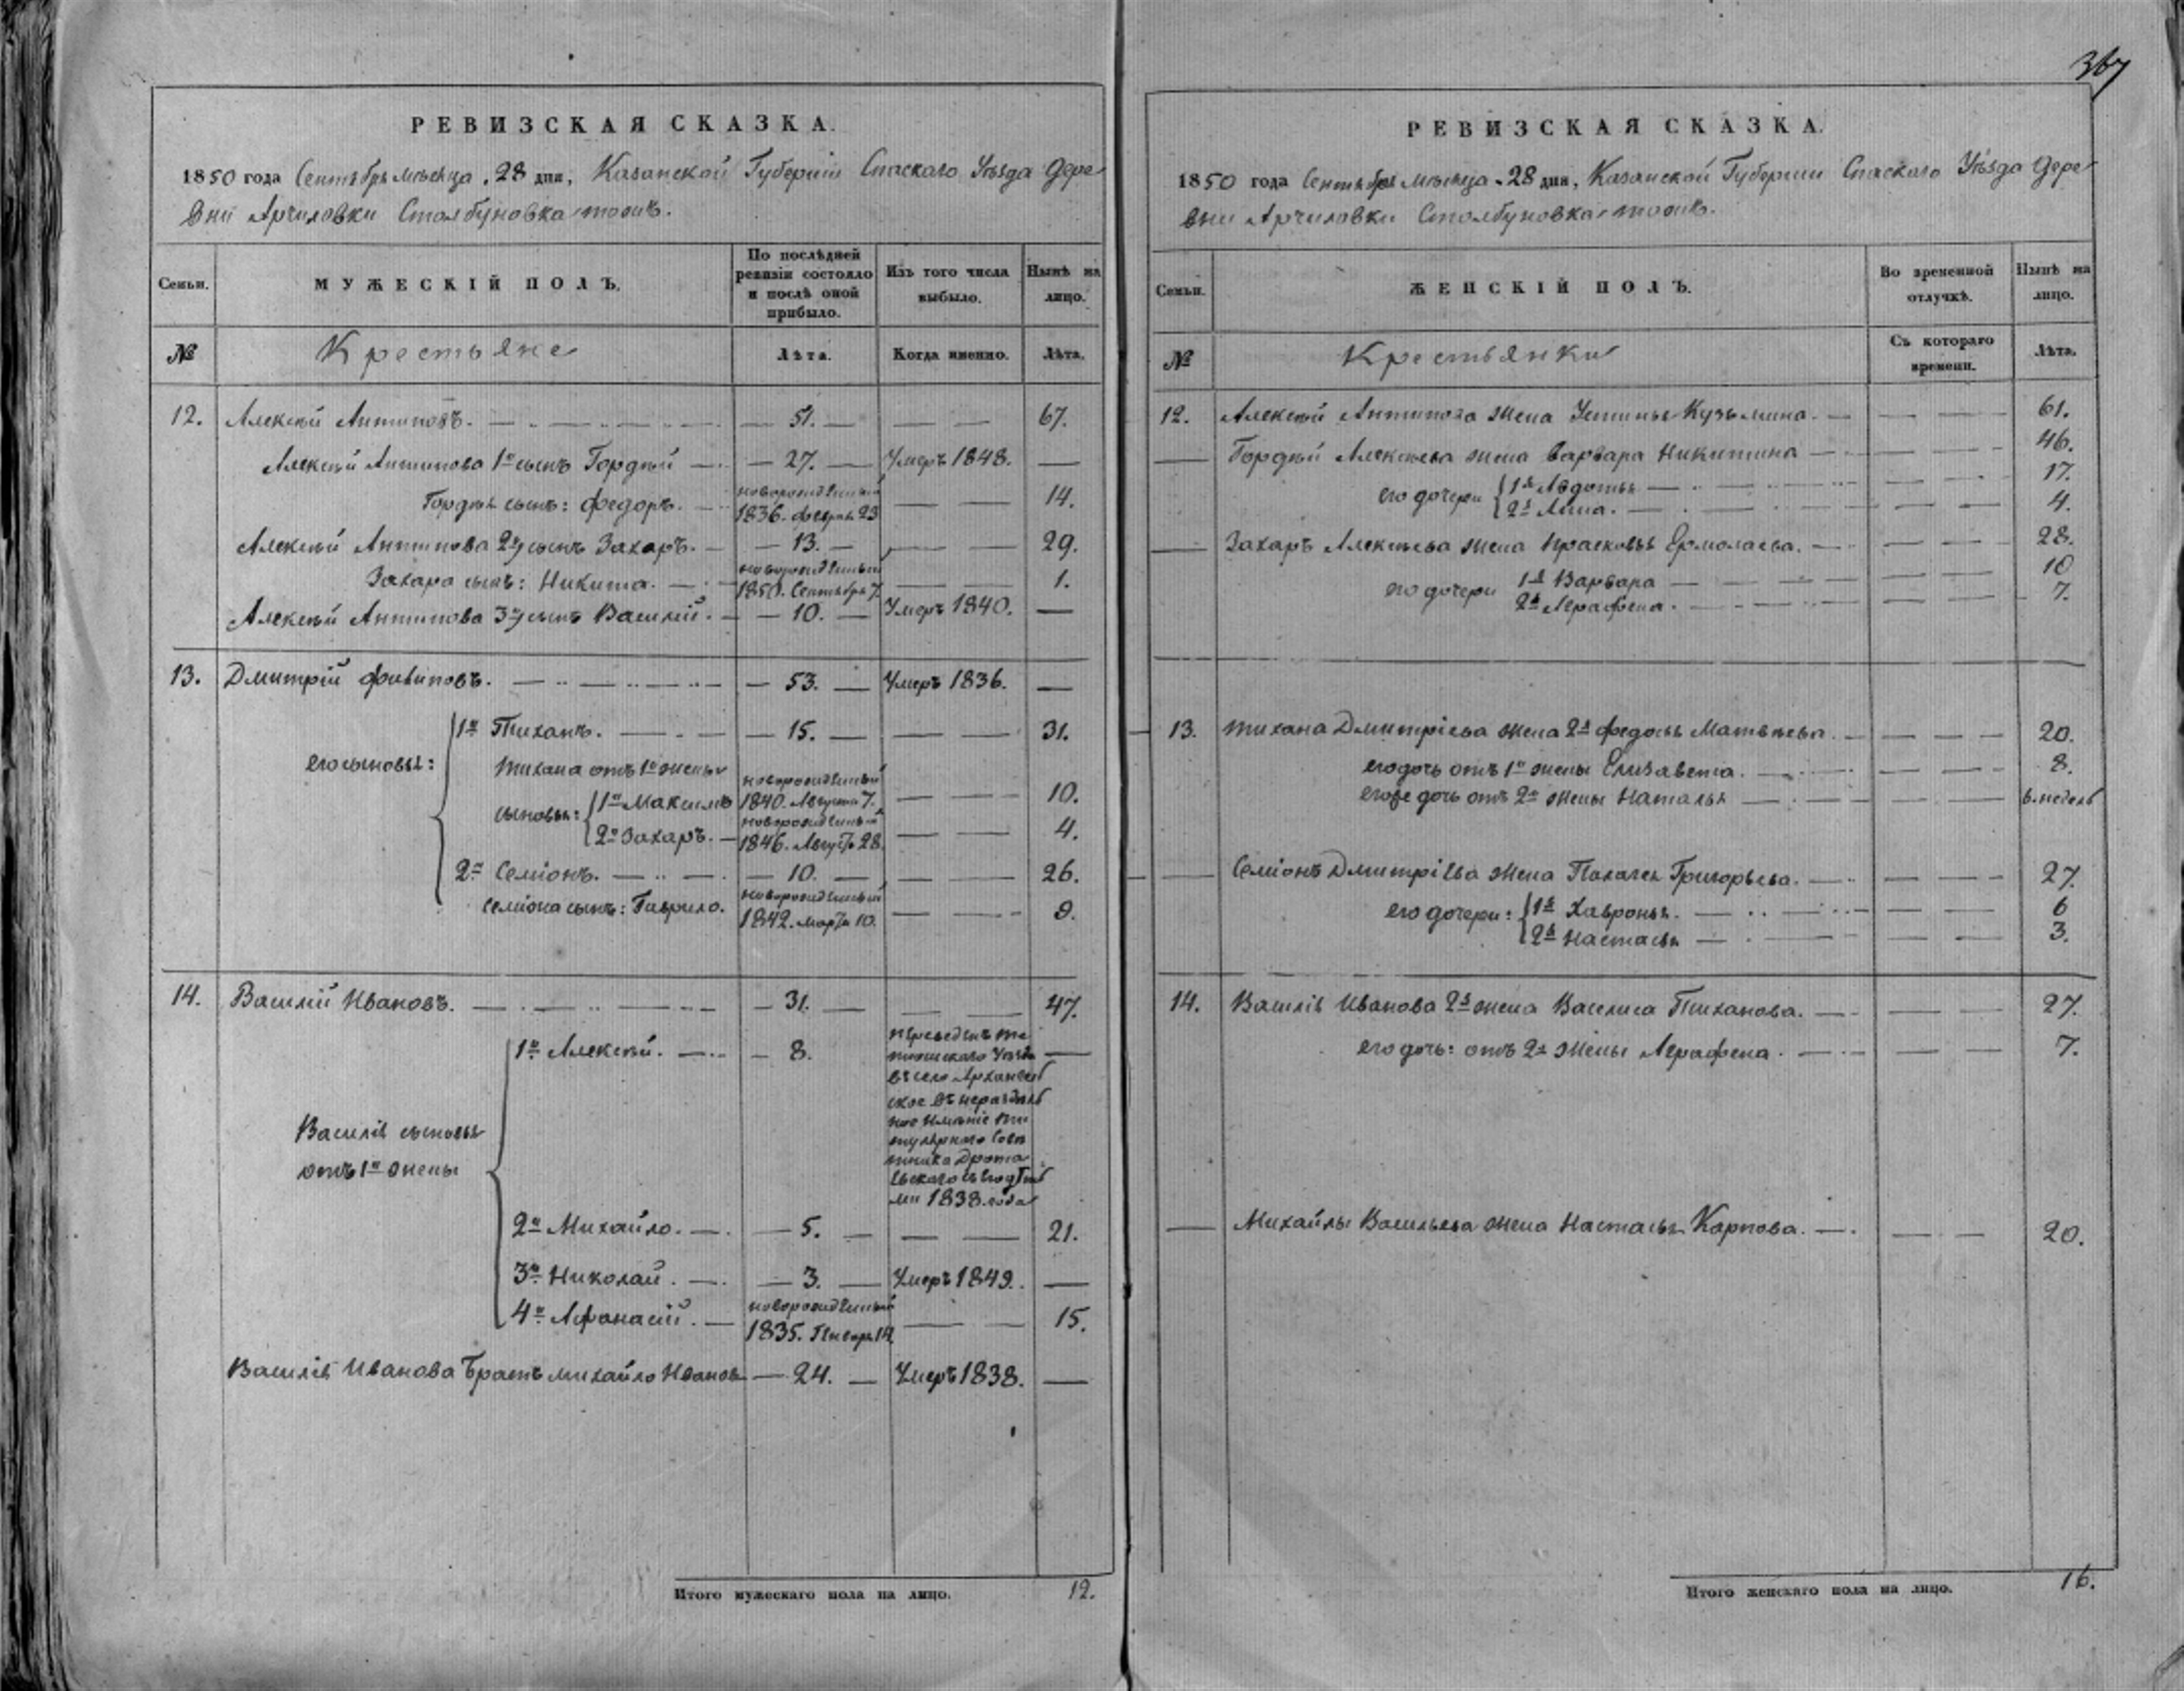 367
РЕВИЗСКАЯ СКАЗКА.
1850 года Сентябрь мѣсяца 28 дня, Казанской Губерніи Спаскаго Уѣзда дере
вни Арчиловки Столбуновка тожъ.
Семьи. МУЖЕСКІЙ ПОЛЪ. По послѣдней ревизіи состояло и послѣ оной прибыло. Изъ того числа выбыло. Нынѣ на лицо.
№ Крестьяне Лѣта. Когда именно. Лѣта.
12. Алексѣй Антиповъ. — 51. — 67.
Алексѣй Антипова 1й сынъ Гордѣй — 27. — Умеръ 1848. —
новорожденный
Гордѣя сынъ: Федоръ. 1836. Февра. 23 — 14.
Алексѣй Антипова 2й сынъ Захаръ. — 13. — 29.
новорожденный
Захара сынъ: Никита. — 1850. Сентября 7. — 1.
Алексѣй Антипова 3й сынъ Василій. — 10. — Умеръ 1840. —
13. Дмитрій Филиповъ. — 53. — Умеръ 1836. —
1й Тиханъ. — 15. — 31.
его сыновья:
Тихана отъ 1й жены
новорожденный
сыновья: 1й Максимъ 1840. Августа 7. — 10.
новорожденный
2й Захаръ. — 1846. Август 28. — 4.
2й Семіонъ. — 10. — 26.
новорожденный
Семіона сынъ: Гаврило. 1842. Марта 10. — 9.
14. Василій Ивановъ. — 31. — 47.
1й Алексѣй. — 8. переведенъ те
тюшскаго Уѣзда —
въ село Архангель
ское въ нераздѣль
ное имѣніе ти
тулярнаго Совѣ
тника
ми 1838. года
Василія сыновья
отъ 1й жены
2й Михайло. — 5. — 21.
3й Николай. — 3. — Умеръ 1849. —
новорожденный
4й Афанасій. — 1835. Генваря 14. — 15.
Василія Иванова братъ Михайло Ивановъ — 24. — Умеръ 1838. —
Итого мужескаго пола на лицо. 12.
РЕВИЗСКАЯ СКАЗКА.
1850 года Сентября мѣсяца 28 дня, Казанской Губерніи Спаскаго Уѣзда дере
вни Арчиловки Столбуновка тожъ.
Семьи. ЖЕНСКІЙ ПОЛЪ. Во временной отлучкѣ. Нынѣ на лицо.
№ Крестьянки Съ котораго времени. Лѣта.
12. Алексѣй Антипова жена Устинья Кузьмина. — 61.
— Гордѣй Алексѣева жена Варвара Никитина — 46.
его дочери 1я Авдотья — 17.
2я Анна. — 4.
— Захаръ Алексѣева жена Прасковья Ермолаева. — 28.
его дочери 1я Варвара — 10
2я Аграфена. — 7.
13. Тихана Дмитріева жена 2я Федосья Матвѣева. — 20.
его дочь отъ 1й жены Елизавета. — 8.
его же дочь отъ 2й жены Наталья — 6. недель
— Семіонъ Дмитріева жена Палагея Григорьева. — 27.
его дочери: 1я Хавронья. — 6
2я Настасья — 3.
14. Василія Иванова 2я жена Василиса Тиханова. — 27.
его дочь: отъ 2й жены Аграфена. — 7.
— Михайлы Васильева жена Настасья Карпова. — 20.
Итого женскаго пола на лицо. 16.